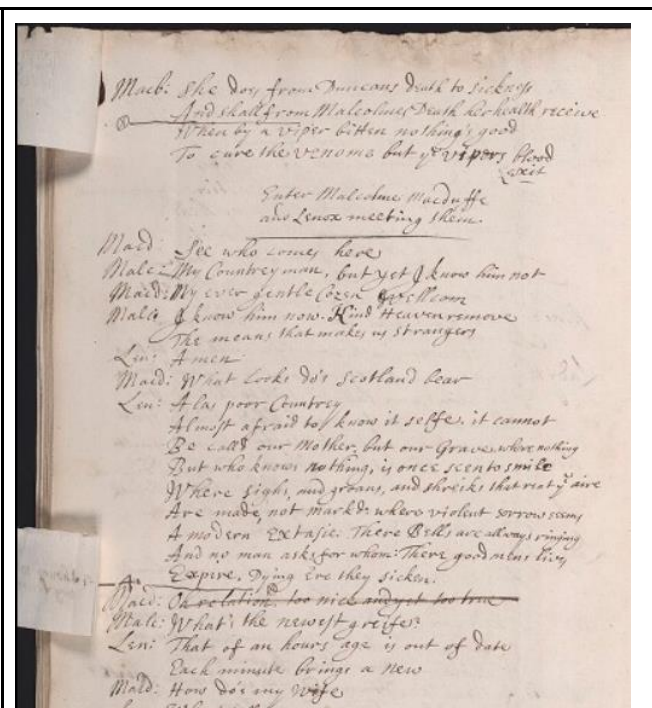 Macb: She dos from Duncans Death to sickness
And shall from Malcolmes Death her health receive
When by a viper bitten nothing's good
To cure the venome but yᵉ vipers blood
exit
Enter Malcolme Macduffe
and Lenox meeting them.
Macd: See who comes here
Malc: My Countreyman, but yet I know him not
Macd: My ever gentle Cozen wellcom
Malc: I know him now. Kind Heaven remove
The means that makes us strangers
Len: Amen
Macd: What Looks do's Scotland bear
Len: Alas poor Countrey
Almost afraid to know it selfe. it cannot
Be calld our Mother, but our Grave, where nothing
But who knows nothing, is once seen to smile
Where sighs, and groans, and shreiks that rent yᵉ aire
Are made, not markd: where violent sorrow seems
A modern Extasie. There Bells are allways ringing
And no man asks for whom: There good mens lives
Expire, Dying Ere they sicken.
Macd: Oh relation too nice and yet too true
Malc: What's the newest greife?
Len: That of an hours age is out of date
Each minute brings a new
Macd: How do's my wife